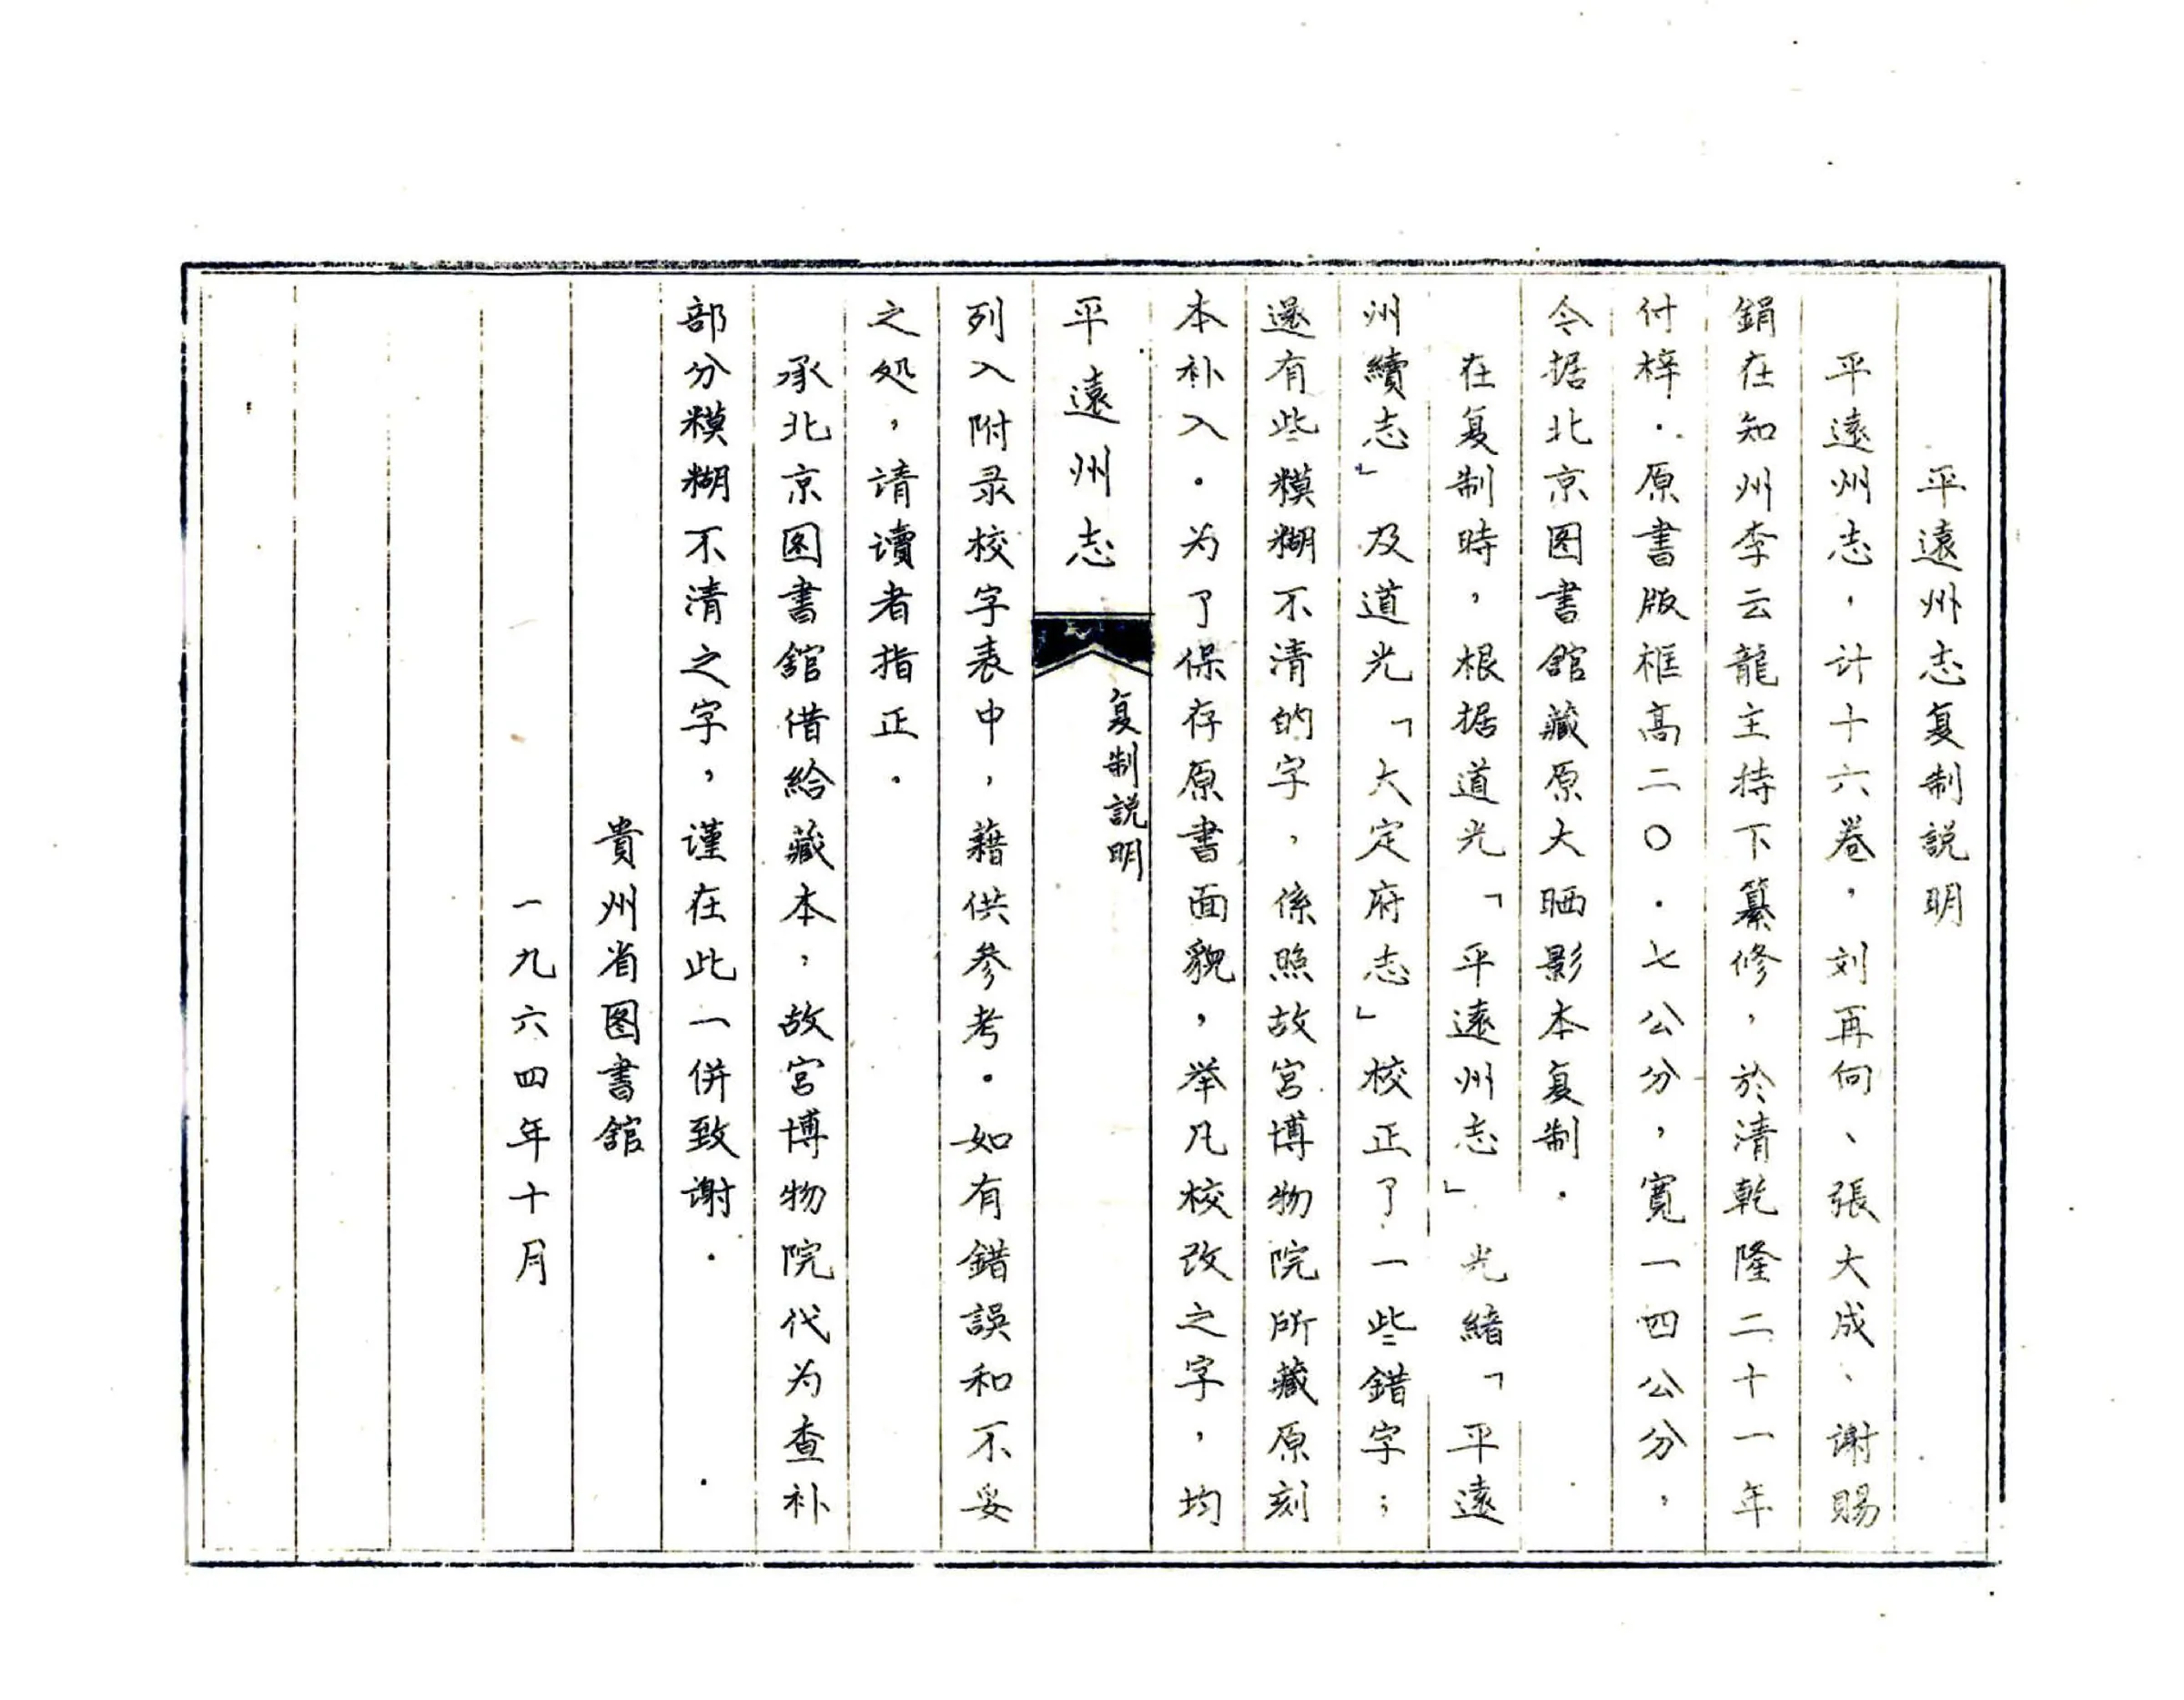 平遠州志复制説明
平遠州志，计十六卷，刘再向、張大成、谢賜
鋗在知州李云龍主持下纂修，於清乾隆二十一年
付梓．原書版框高二〇．七公分，寬一四公分，
令据北京图書舘藏原大晒影本复制．
在复制時，根据道光「平遠州志」光緒「平遠
州續志」及道光「大定府志」校正了一些錯字；
還有些糢糊不清的字，係照故宮博物院所藏原刻
本补入．为了保存原書面貌，举凡校改之字，均
平遠州志 复制説明
列入附录校字表中，藉供参考．如有錯誤和不妥
之処，请讀者指正．
承北京图書舘借給藏本，故宮博物院代为查补
部分糢糊不清之字，谨在此一併致谢．
貴州省图書舘
一九六四年十月